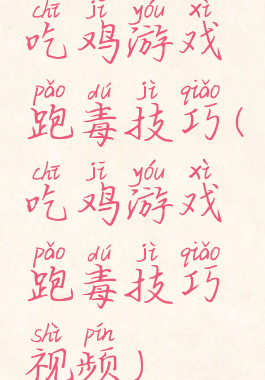 chī jī yóu xì
吃鸡游戏
pǎo dú jì qiǎo
跑毒技巧(
chī jī yóu xì
吃鸡游戏
pǎo dú jì qiǎo
跑毒技巧
shì pín
视频)